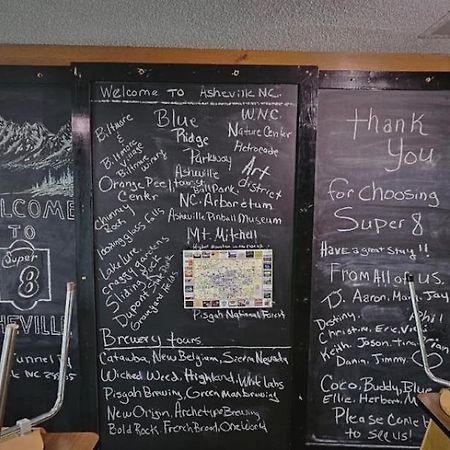 WELCOME
TO
Super
8
ASHEVILLE
Tunnel
NC 28
Welcome To Asheville NC.
Biltmore
&
Biltmore
Village
Biltmore
Blue
Ridge
Parkway
Asheville
W.N.C.
Nature Center
Retrocade
Art
district
Orange Peel
Ballpark
Center
NC. Arboretum
Chimney
Rock
Asheville Pinball Museum
looking glass Falls
Mt. Mitchell
Highest Mountain
Lake Lure
Craggy Gardens
Sliding Rock
Dupont State Park
Graveyard Fields
Pisgah National Forest
Brewery tours
Catawba, New Belgium, Sierra Nevada
Wicked Weed, Highland, Whit Labs
Pisgah Brewing, Green Man Brewing
New Origin, Archetype Brewing
Bold Rock, French Broad, One World
Thank
You
for choosing
Super 8
Have a great stay!!
From All of us.
TJ. Aaron. Mari. Jay
Destiny. Phil
Christin. Eric. Vicki
Keith. Jason. Tina
Dania. Jimmy.
Coco, Buddy, Blue
Ellie, Herbert
Please Come
to see us!